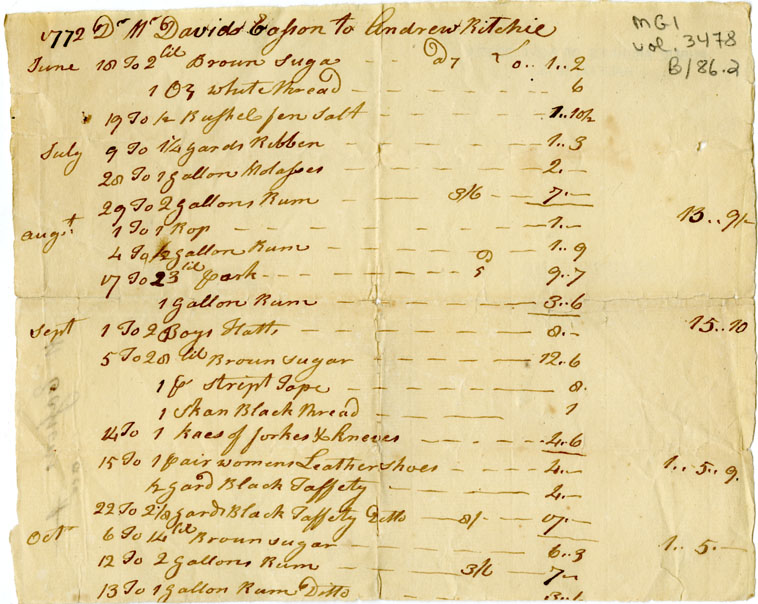 1772 Dr Mr Davids Easson to Andrew Ritchie
MG1
vol. 3478
B/86.2
June 18 To 2 lib Broun Suga - - @ 7 £ 0.. 1.. 2
1 Oz white thread - - - - - - 6
19 To ½ Bushel fen Salt - - - - 1.. 10½
July 9 To 1¼ yards Ribben - - - - 1.. 3
28 To 1 gallon Molasses - - - - 2.. -
29 To 2 gallons Rum - - 3/6 - - 7.. -
13.. 9/-
augst 1 To 1 Rop - - - - - - 1.. -
4 To ½ gallon Rum - - - - 1.. 9
17 To 23 lib pork - - - - @ 5 9.. 7
1 gallon Rum - - - - 3.. 6
15.. 10
Sept 1 To 2 Boys Hatts - - - - 8.. -
5 To 28 lib Broun Sugar - - - - 12.. 6
1 p stript Tape - - - - 8.
1 Skan Black thread - - 1
14 To 1 kaes of forkes & Kneves - - - - 2.. 6
1.. 5.. 9.
15 To 1 pair womens Leather Shoes - - - 4.. -
½ yard Black Taffety - - - 4.. -
22 To 2⅛ yards Black Taffety Ditto - 8/- - 17.. -
1.. 5.. -
Octr 6 To 14 lib Broun sugar - - - 6.. 3
12 To 2 gallons Rum - - 3/6 - 7.. -
13 To 1 gallon Rum Ditto